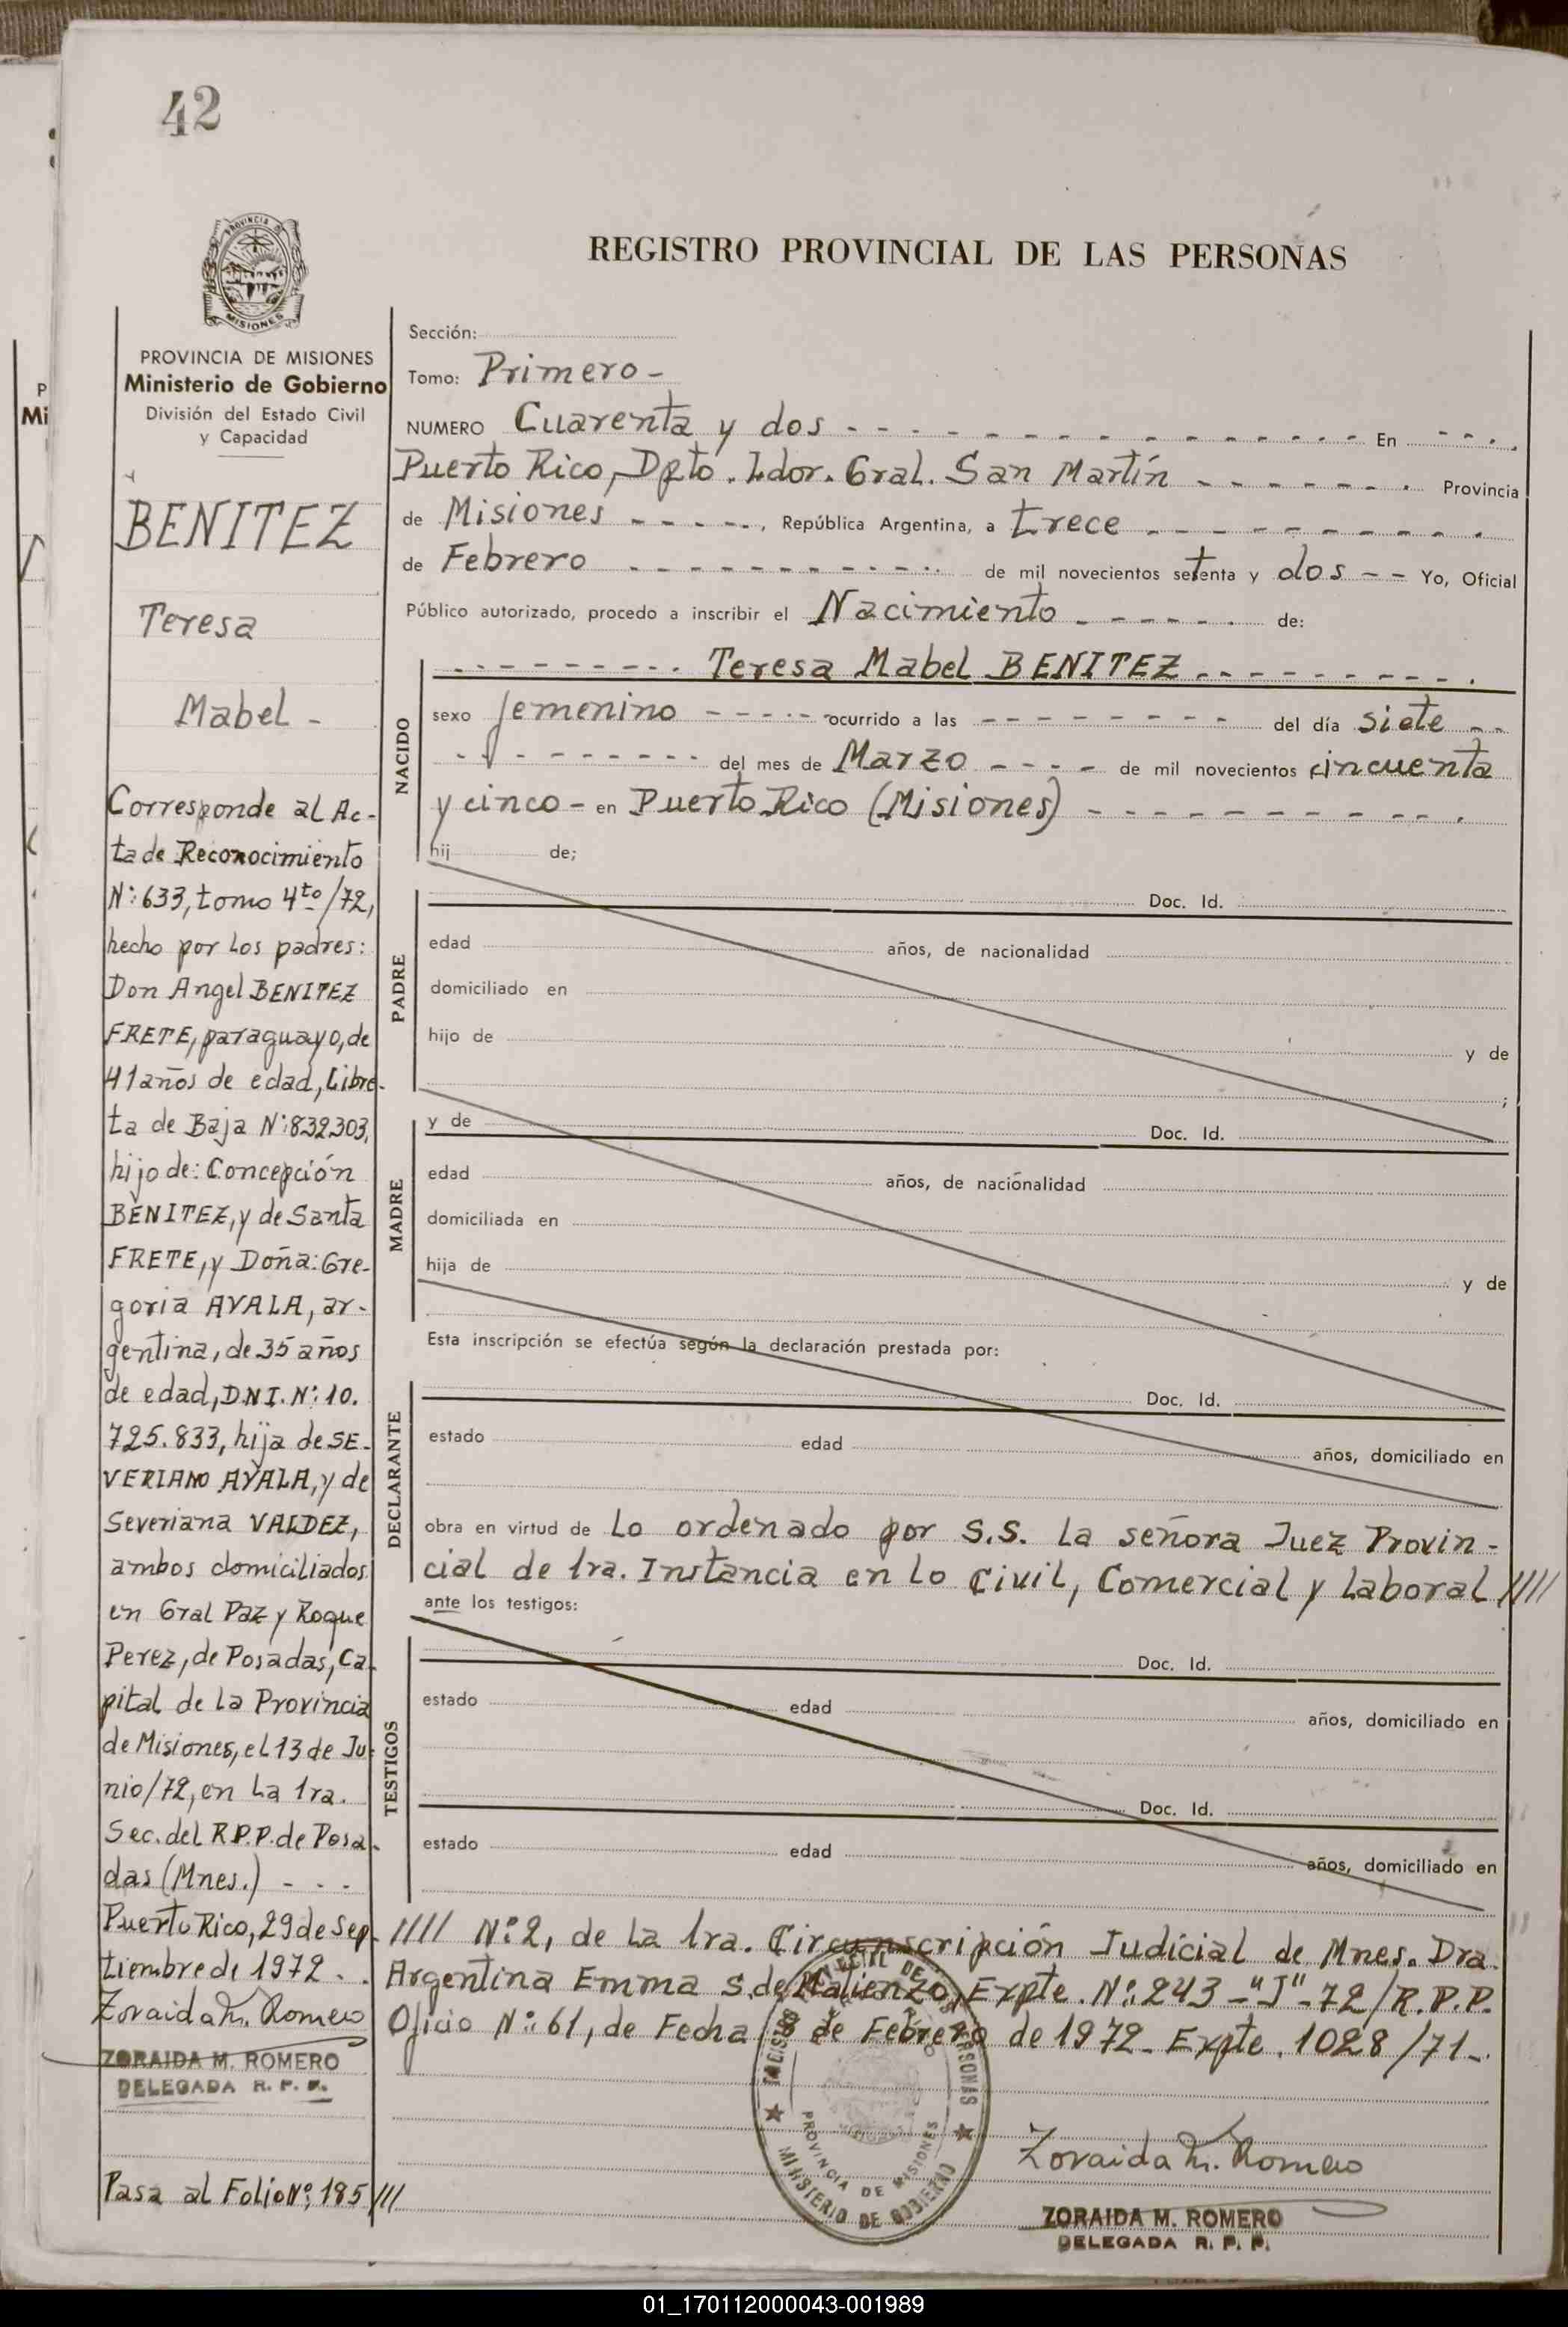 42
PROVINCIA DE
MISIONES
REGISTRO PROVINCIAL DE LAS PERSONAS
PROVINCIA DE MISIONES
Ministerio de Gobierno
División del Estado Civil
y Capacidad
BENITEZ
Teresa
Mabel -
Corresponde al Ac-
ta de Reconocimiento
N°: 633, tomo 4to/72,
hecho por los padres:
Don Angel BENITEZ
FRETE, paraguayo, de
41 años de edad, Libre-
ta de Baja N°: 832303,
hijo de: Concepción
BENITEZ, y de Santa
FRETE, y Doña: Gre-
goria AYALA, ar-
gentina, de 35 años
de edad, D.N.I. N°: 10.
725.833, hija de SE-
VERIANO AYALA, y de
Severiana VALDEZ,
ambos domiciliados
en Gral Paz y Roque
Perez, de Posadas, Ca-
pital de la Provincia
de Misiones, el 13 de Ju-
nio/72, en la 1ra.
Sec. del R.P.P. de Posa-
das (Mnes.) - - -
Puerto Rico, 29 de Sep-
tiembre de 1972 . .
Zoraida M. Romero
ZORAIDA M. ROMERO
DELEGADA R. P. P.
Pasa al Folio N°: 185 ///
Sección:
Tomo: Primero -
NUMERO Cuarenta y dos - - - En - - -
Puerto Rico, Dpto. Ldor. Gral. San Martín - - - Provincia
de Misiones - - - , República Argentina, a trece - - -
de Febrero - - - de mil novecientos setenta y dos - - Yo, Oficial
Público autorizado, procedo a inscribir el Nacimiento - - - de:
NACIDO
- - - Teresa Mabel BENITEZ - - -
sexo femenino - - - ocurrido a las - - - del día siete - -
- - - del mes de Marzo - - - - de mil novecientos cincuenta
y cinco - en Puerto Rico (Misiones) - - -
hij de;
PADRE
Doc. Id.
edad años, de nacionalidad
domiciliado en
hijo de y de
;
MADRE
y de Doc. Id.
edad años, de nacionalidad
domiciliada en
hija de y de
Esta inscripción se efectúa según la declaración prestada por:
DECLARANTE
Doc. Id.
estado edad años, domiciliado en
obra en virtud de lo ordenado por S.S. la señora Juez Provin-
cial de 1ra. Instancia en lo Civil, Comercial y laboral ////
ante los testigos:
TESTIGOS
Doc. Id.
estado edad años, domiciliado en
Doc. Id.
estado edad años, domiciliado en
//// N°: 2, de la 1ra. Circunscripción Judicial de Mnes. Dra.
Argentina Emma S. de Malienzo, Expte. N°: 243 - "J" - 72/R.P.P.
Oficio N°: 61, de Fecha 8 de Febrero de 1972 - Expte. 1028/71 -
PROVINCIA DE MISIONES
MINISTERIO DE GOBIERNO
Zoraida M. Romero
ZORAIDA M. ROMERO
DELEGADA R. P. P.
01_170112000043-001989